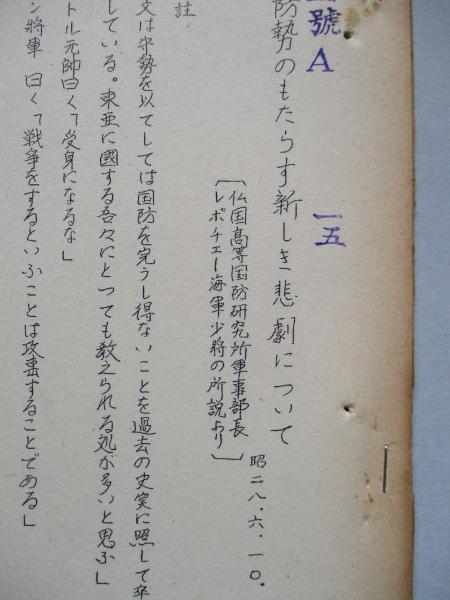 號A
一五
防勢のもたらす新しき悲劇について
仏国高等国防研究所軍事部長
レポチエー海軍少将の所説あり
昭二八.六.一〇.
註
文は守勢を以てしては国防を完うし得ないことを過去の史実に照して卒
している。東亜に國する吾々にとつても教えられる処が多いと思ふ」
トル元帥曰く「受身になるな」
ン將軍 曰く「戦争をするといふことは攻撃することである」